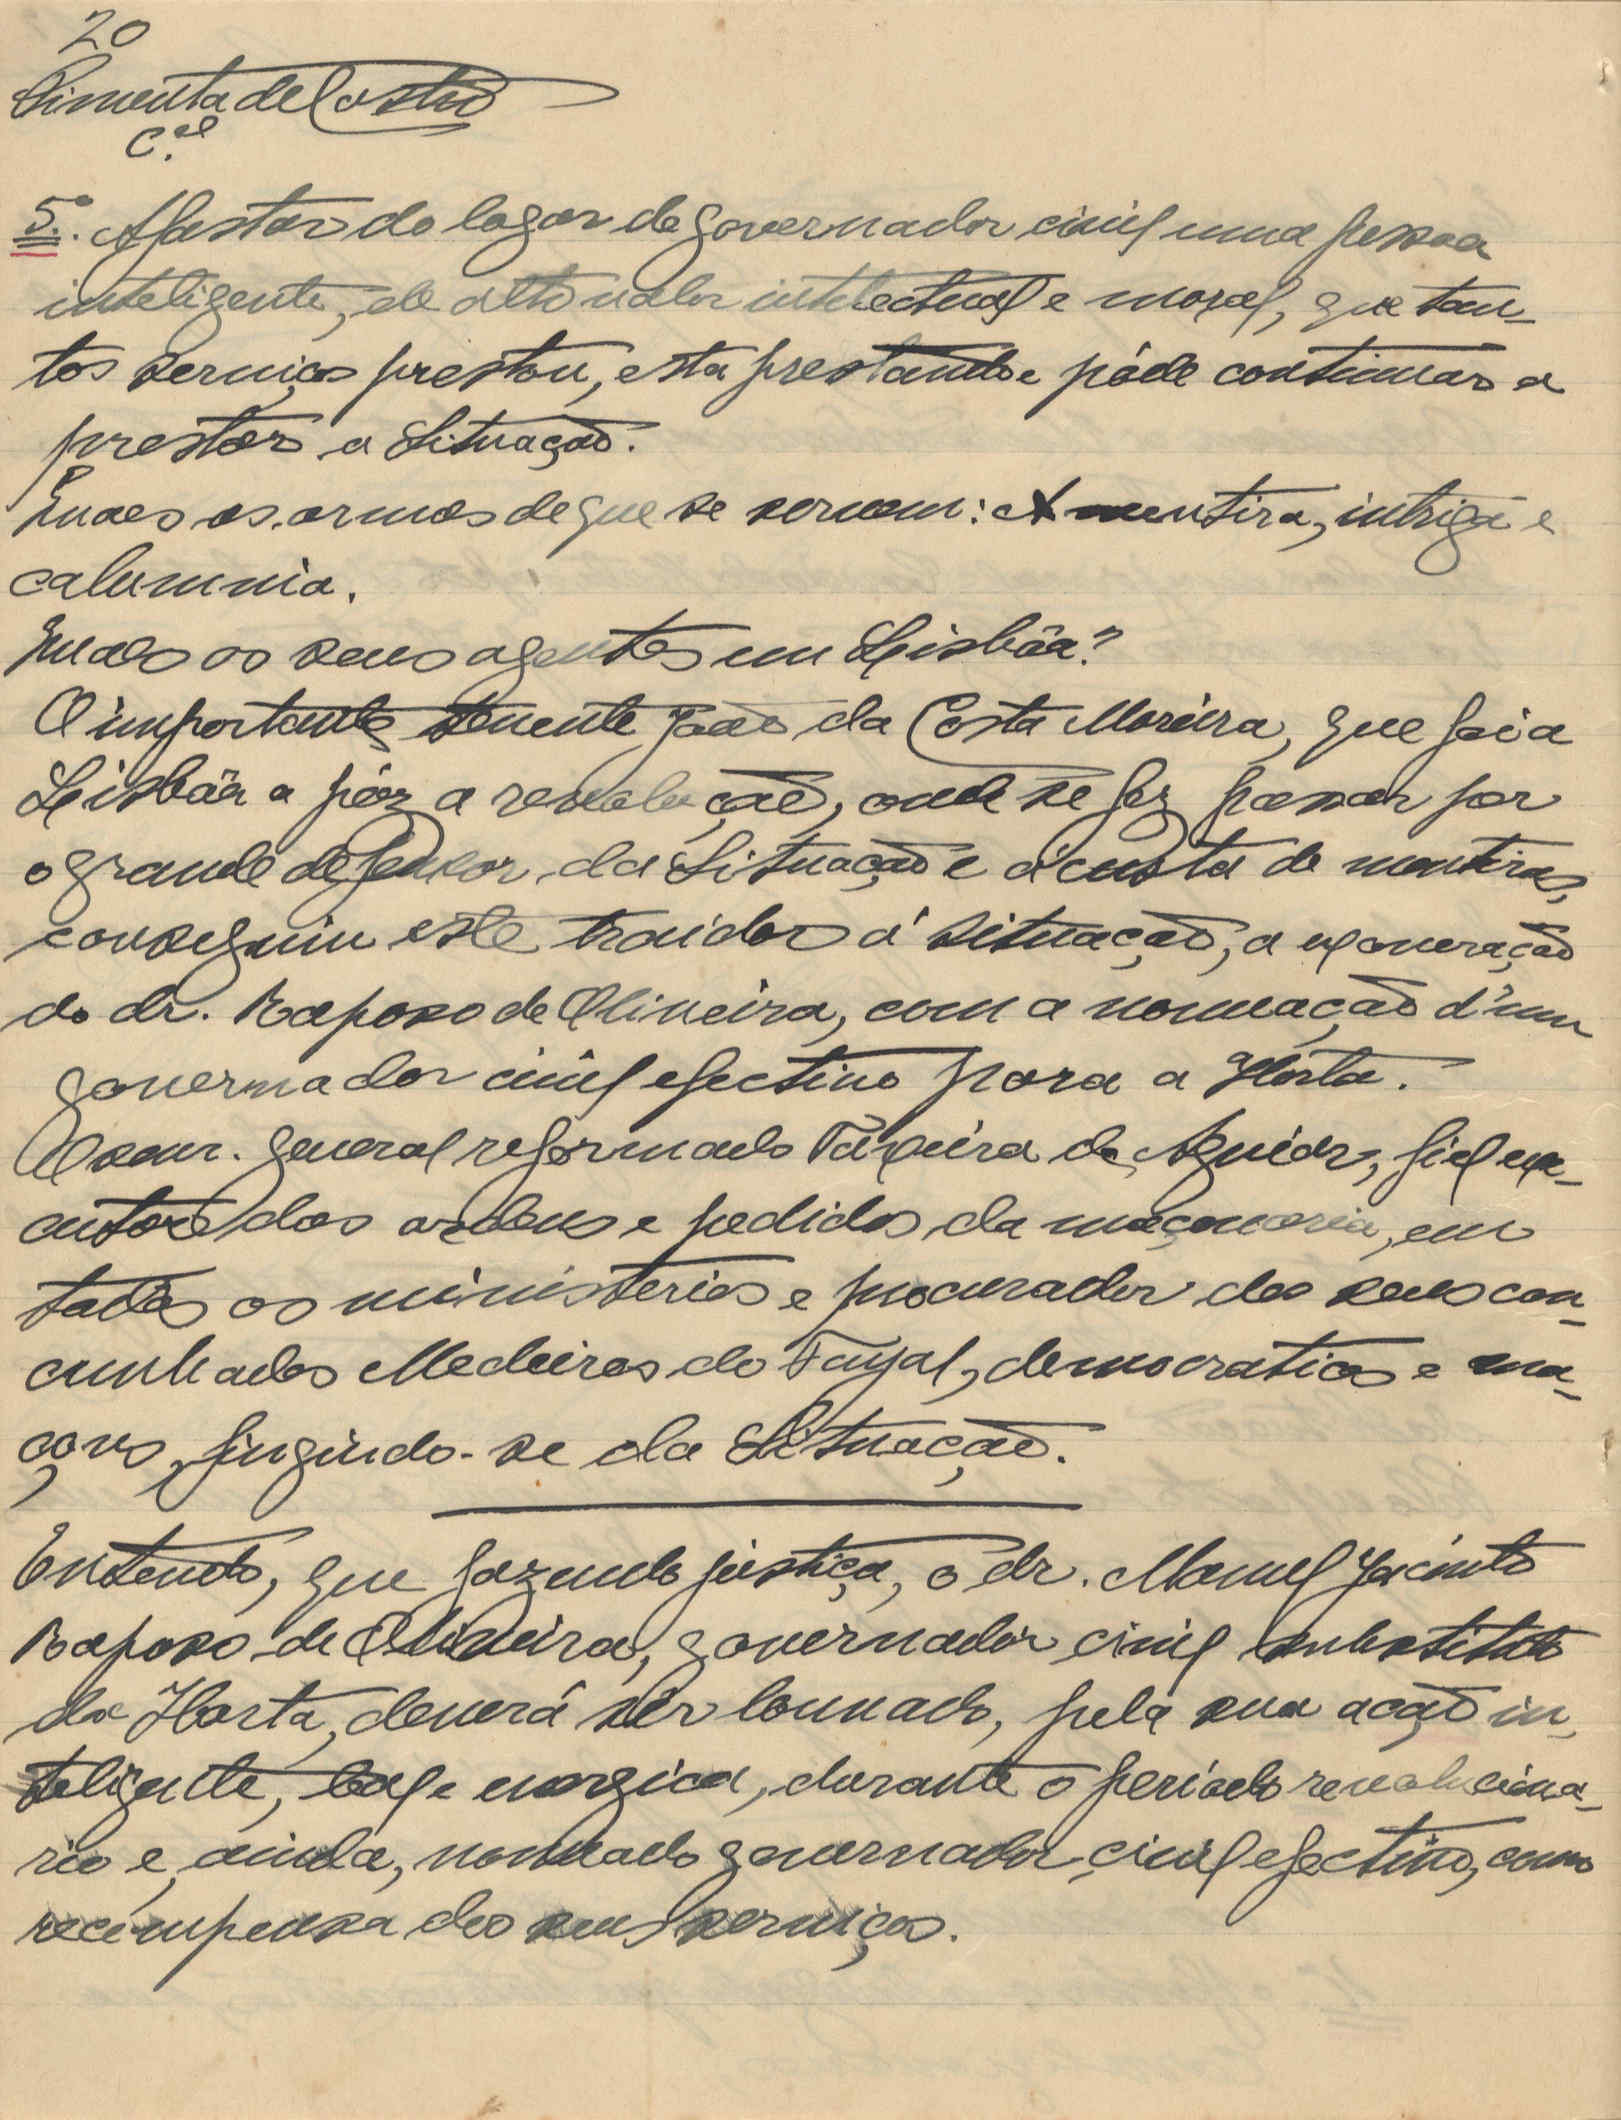 20
Pimenta de Castro
C.el
5º. Afastar do logar de governador civil uma pessoa
inteligente, de alto valor intelectual e moral, que tan-
tos serviços prestou, esta prestando e póde continuar a
prestar a Situação.
Quaes as armas de que se servem: A mentira, intriga e
calumnia.
Quaes os seus agentes em Lisbôa?
O importante tenente João da Costa Moreira, que foi a
Lisbôa a póz a revolução, onde se fez passar por
o grande defensor da Situação e á custa de mentiras,
conseguiu este traidor á situação, a exoneração
do dr. Raposo de Oliveira, com a nomeação d'um
governador civil efectivo para a Horta.
O snr. general reformado Teixeira de Aguiar, fiel exe-
cutor das ordens e pedidos da maçonaria, em
todos os ministerios e procurador dos seus con-
cunhados Medeiros do Fayal, democraticos e ma-
çons, fingindo-se da Situação.
Entendo, que fazendo justiça, o dr. Manuel Jacinto
Raposo de Oliveira, governador civil substituto
da Horta, deverá sêr louvado, pela sua acção in-
teligente, leal e energica, durante o periodo revoluciona-
rio e, ainda, nomeado governador civil efectivo, como
recompensa dos seus serviços.